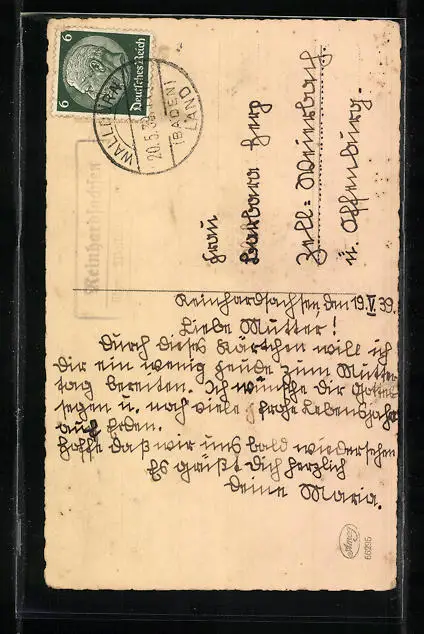 6 6
Deutsches Reich
WALLDÜRN
20.5.39
(BADEN)
LAND
Reinhardsachsen
Frau
Barbara Herp
Zell-Weierbach
ü. Offenburg.
Reinhardsachsen, den 19.V.39.
Liebe Mutter!
Durch dieses Kärtchen will ich
Dir ein wenig Feude zum Mutter
tag bereiten. Ich wünsche Dir Gottes
segen u. noch viele frohe Lebensjahre
auf Erden.
Hoffe daß wir uns bald wiedersehen
Es grüßt Dich herzlich
Deine Maria.
Amag
66295